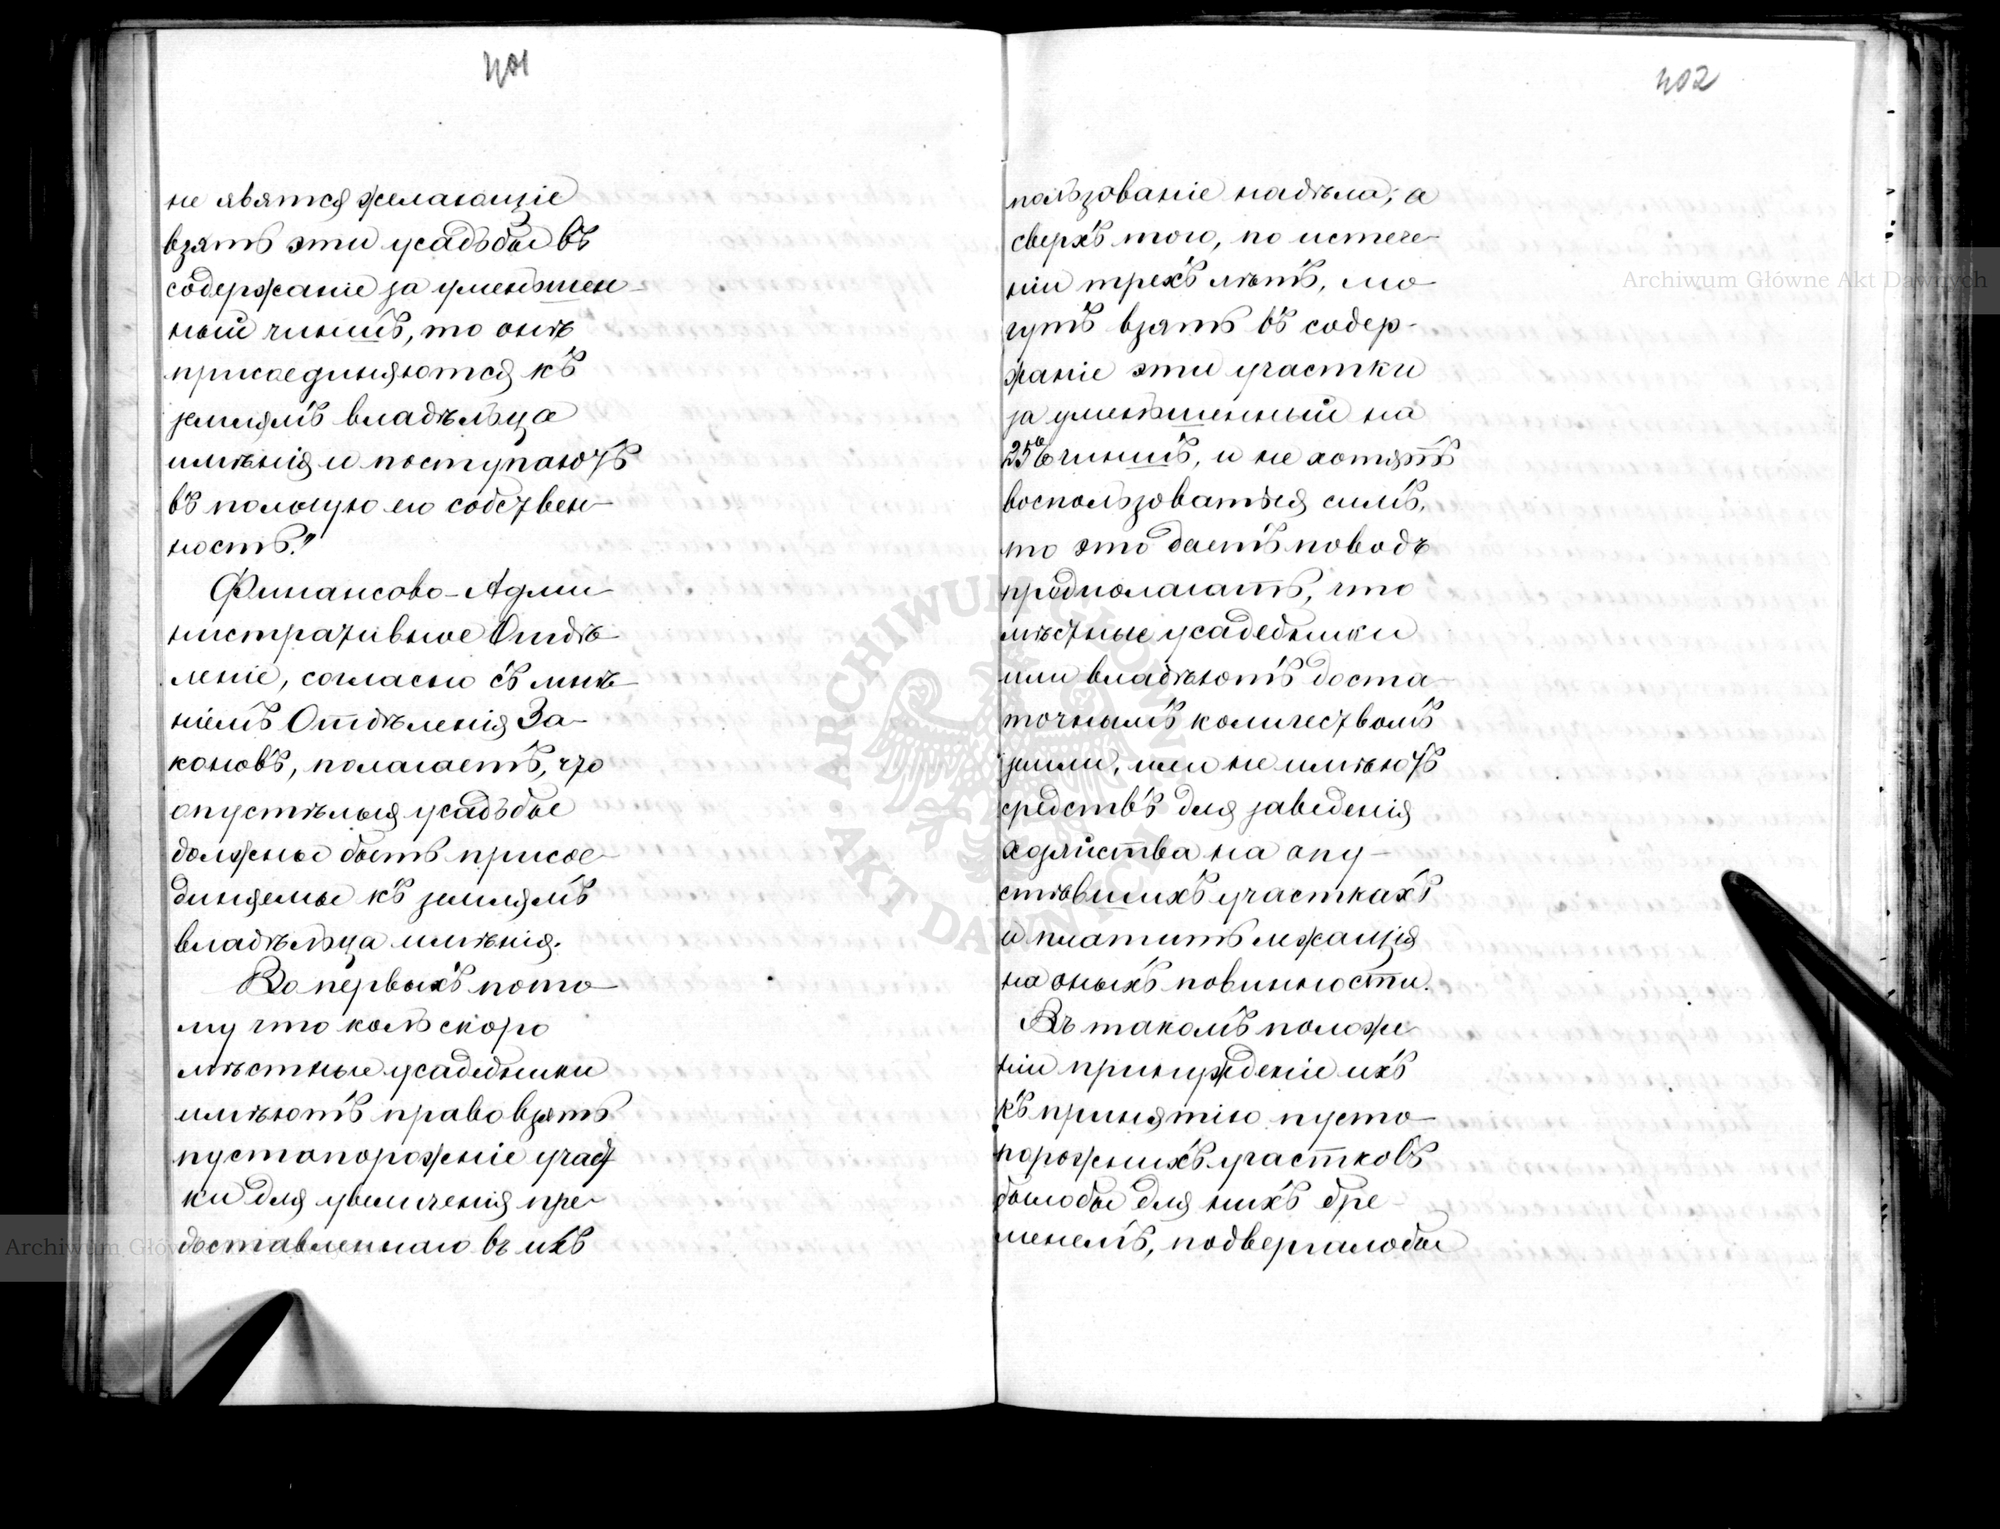 401
не явятся желающіе
взять эти усадьбы въ
содержаніе за уменьшен-
ный чиншъ, то онѣ
присоединяются къ
землямъ владѣльца
имѣнія и поступаютъ
въ полную его собствен-
ность."
Финансово-Адми-
нистративное Отдѣ-
леніе, согласно съ мнѣ-
ніемъ Отдѣленія За-
коновъ, полагаетъ, что
опустѣлыя усадьбы
должны быть присое-
диняемы къ землямъ
владѣльца имѣнія.
Во первыхъ пото-
му что коль скоро
мѣстные усадебники
имѣютъ право взять
пустопорожніе участ-
ки для увеличенія пре-
доставленнаго въ ихъ
402
пользованіе надѣла; а
сверхъ того, по истече-
ніи трехъ лѣтъ, мо-
гутъ взять въ содер-
жаніе эти участки
за уменьшенный на
25% чиншъ, и не хотятъ
воспользоваться симъ,
то это даетъ поводъ
предполагать, что
мѣстные усадебники
или владѣютъ доста-
точнымъ количествомъ
земли, или не имѣютъ
средствъ для заведенія
хозяйства на опу-
стѣвшихъ участкахъ
и платить лежащія
на оныхъ повинности.
Въ такомъ положе-
ніи принужденіе ихъ
къ принятію пусто-
порожнихъ участковъ
было бы для нихъ бре-
менемъ, подвергало бы
Archiwum Główne Akt Dawnych
ARCHIWUM GŁÓWNE AKT DAWNYCH